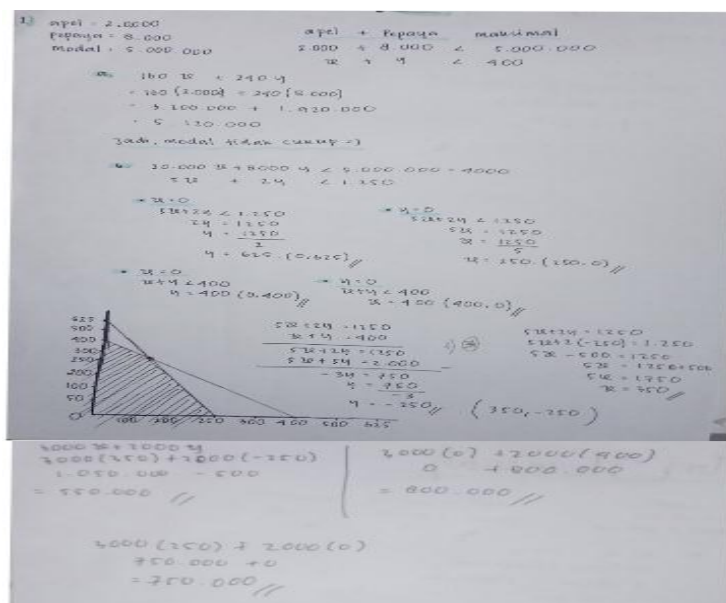 1) apel = 2.0000
Pepaya = 8.000
modal = 5.000.000
apel + Pepaya maksimal
2.000 + 8.000 < 5.000.000
x + y < 400
a. 160 x + 240 y
= 3.200.000 + 1.920.000
= 5.120.000
Jadi, modal tidak cukup =)
b. 20.000 x + 8000 y < 5.000.000 = 4000
5x + 2y < 1.250
* x=0
5x+2y < 1.250
2y = 1250
y = 1250
2
y = 625. (0,625) //
* y=0
5x+2y < 1250
5x = 1250
x = 1250
5
x = 250. (250,0) //
* x=0
x+y < 400
y = 400 (0,400) //
* y=0
x+y < 400
x = 400 (400,0) //
625
500
400
300
250
200
100
50
0
100 200 250 300 400 500 625
5x+2y = 1250
x+y = 400
5x+2y = 1250
5x+5y = 2.000
-3y = 750
y = 750
-3
y = -250 //
5x+2y = 1250
5x+2(-250) = 1.250
5x - 500 = 1250
5x = 1250+500
5x = 1750
x = 350 //
(350,-250)
3000 x + 2000 y
3000(350) + 2000(-250)
1.050.000 - 500
= 550.000 //
3000(0) + 2000(400)
0 + 800.000
= 800.000 //
3000(250) + 2000(0)
750.000 + 0
= 750.000 //